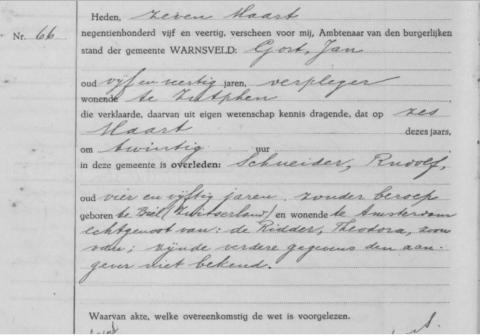 Heden, zeven Maart
Nr. 66 negentienhonderd vijf en veertig, verscheen voor mij, Ambtenaar van den burgerlijken
stand der gemeente WARNSVELD: Gort, Jan
oud vijf en veertig jaren, verpleger
wonende te Zutphen,
die verklaarde, daarvan uit eigen wetenschap kennis dragende, dat op zes
Maart dezes jaars,
om twintig uur
in deze gemeente is overleden: Schneider, Rudolf,
oud vier en vijftig jaren, zonder beroep
geboren te Biel (Zwitserland) en wonende te Amsterdam
echtgenoot van: de Ridder, Theodora, zoon
van; zijnde verdere gegevens den aan-
gever niet bekend.
Waarvan akte, welke overeenkomstig de wet is voorgelezen.